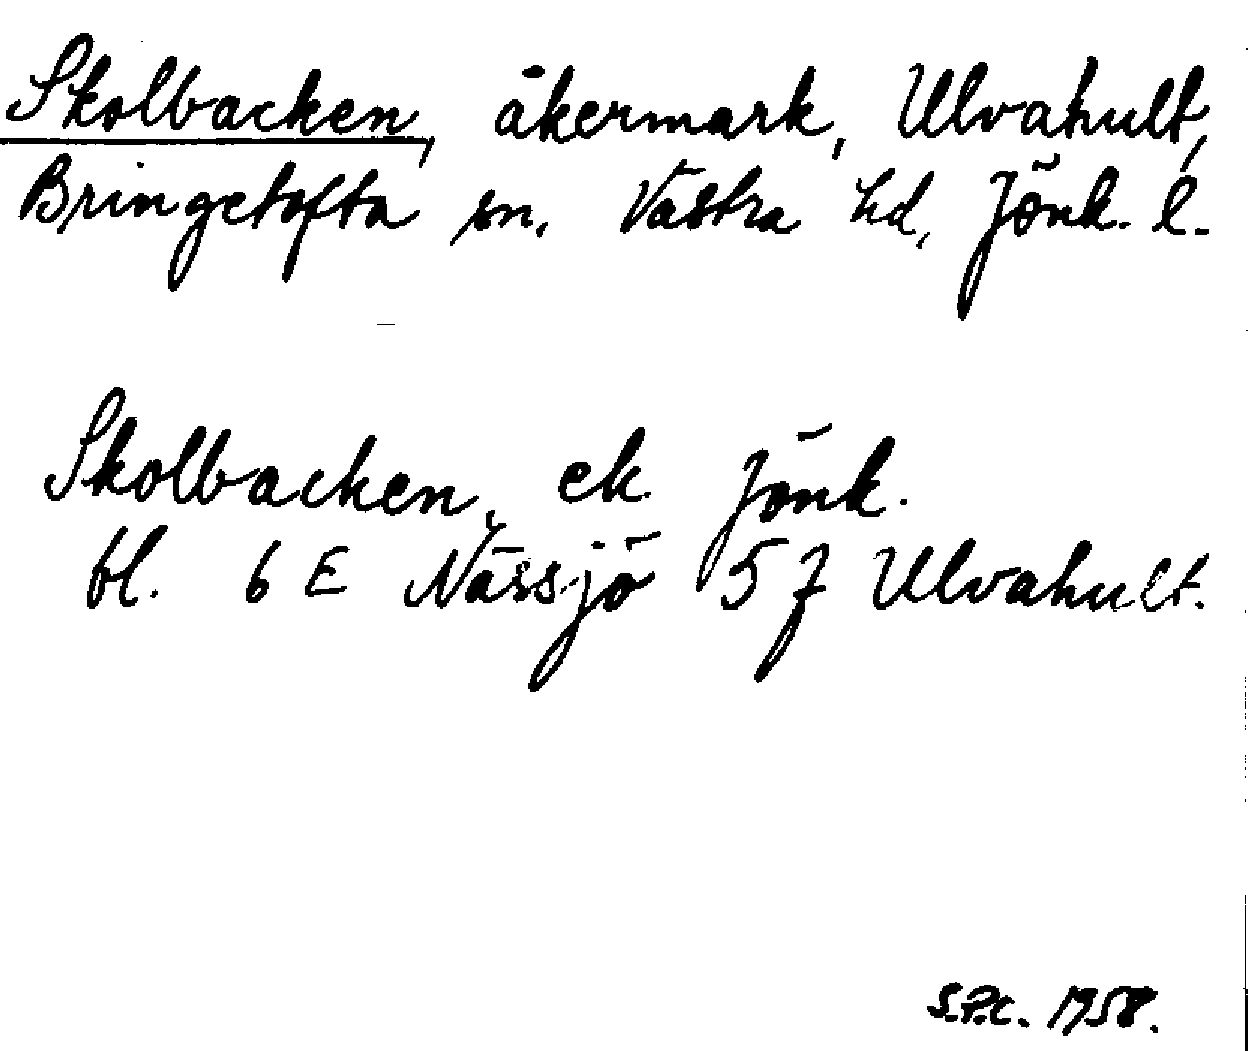 Skolbacken, åkermark, Ulvahult,
Bringetofta sn. Västra hd, Jönk. l.
Skolbacken, ek. Jönk.
bl. 6 E Nässjö 5 j Ulvahult.
S.P.C. 1958.